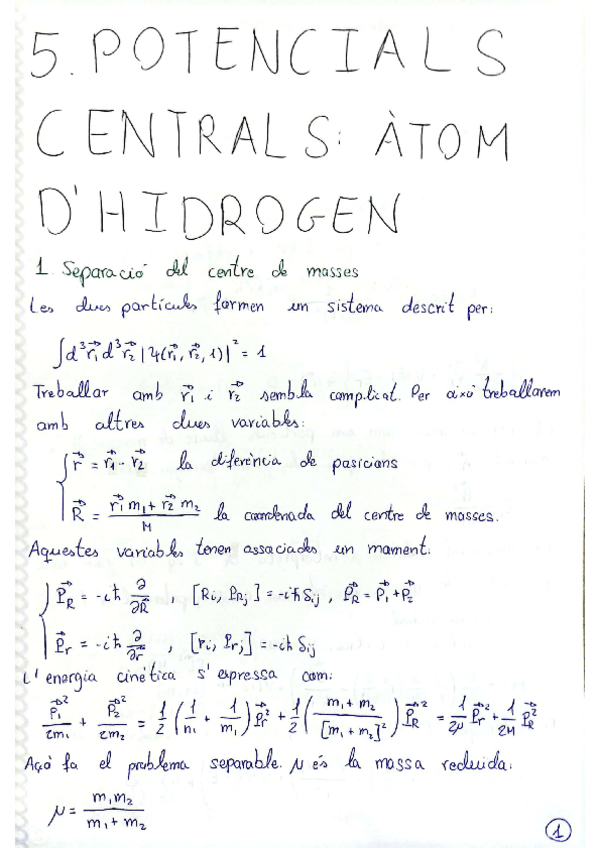 5. POTENCIALS
CENTRALS: ÀTOM
D'HIDROGEN
1. Separació del centre de masses
Les dues partícules formen un sistema descrit per:
∫d³r⃗₁d³r⃗₂|Ψ(r⃗₁, r⃗₂, 1)|² = 1
Treballar amb r⃗₁ i r⃗₂ sembla complicat. Per això treballarem
amb altres dues variables:
r⃗ = r⃗₁ - r⃗₂ la diferència de posicions
R⃗ = (r⃗₁ m₁ + r⃗₂ m₂)/M la coordenada del centre de masses.
Aquestes variables tenen associades un moment:
P⃗_R = -iħ ∂/∂R⃗ , [Ri, PRj] = -iħ δij , P⃗_R = P⃗₁ + P⃗₂
P⃗r = -iħ ∂/∂r⃗ , [ri, Prj] = -iħ δij
L'energia cinètica s'expressa com:
P⃗₁²/2m₁ + P⃗₂²/2m₂ = 1/2 (1/m₁ + 1/m₁) P⃗r² + 1/2 ((m₁ + m₂)/[m₁ + m₂]²) P⃗_R² = 1/2μ P⃗r² + 1/2M P⃗_R²
Açò fa el problema separable. μ és la massa reduïda:
μ = m₁m₂/(m₁ + m₂)
1